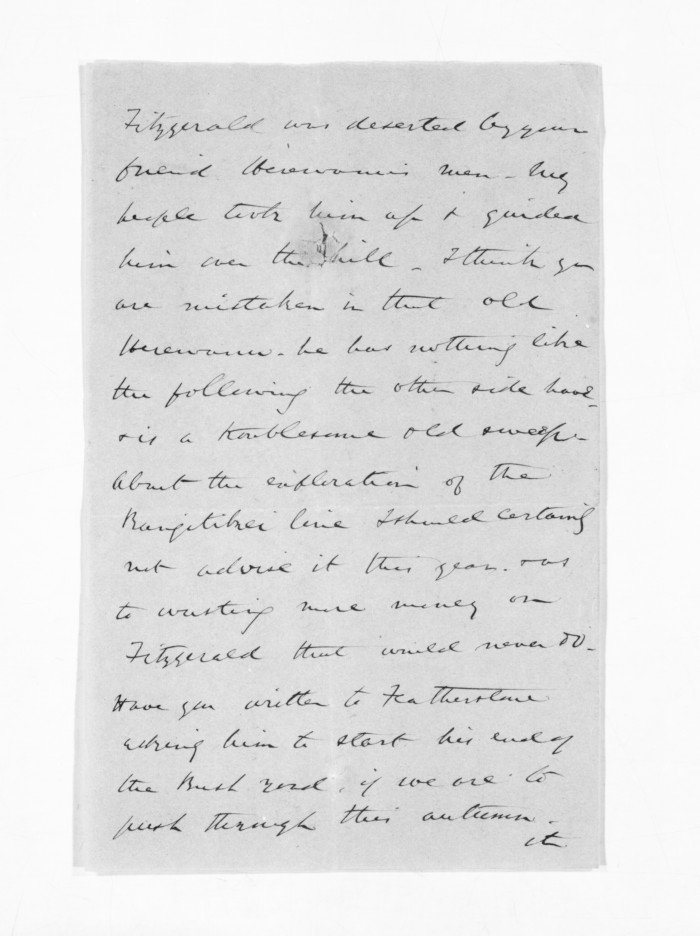 Fitzgerald was deserted by your
friend Herewanis men - My
people took him up & guided
him over the hill - I think you
are mistaken in that old
Herewanu - he has nothing like
the following the other side have -
& is a troublesome old sweep -
About the exploration of the
Rangitikei line I should certainly
not advise it this year. & as
to wasting more money on
Fitzgerald that would never do -
Have you written to Featherstone
asking him to start his end of
the Bush road, if we are to
push through this autumn -
it